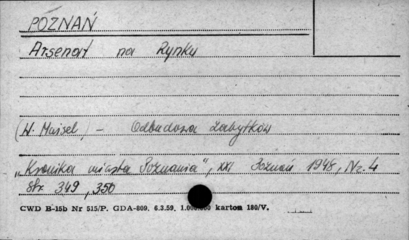 POZNAŃ
Arsenał na Rynku
(W. Maisel) - Odbudowa Zabytków
"Kronika miasta Poznania", XXI Poznań 1948, Nr. 4
Str 349, 350
CWD B-15b Nr 515/P. GDA-809. 6.3.59. 1.000.000 karton 180/V.